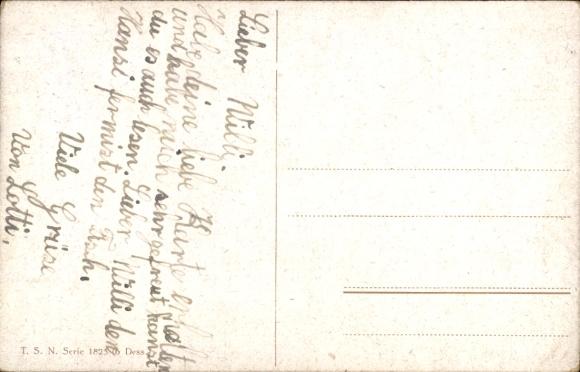 Lieber Willi.
Habe deine liebe Karte erhalten
und habe mich sehr gefreut kanst
du es auch lesen. Lieber Willi den
Hansi fermist den Fisch.
Viele Grüse
Von Lotti.
T. S. N. Serie 1825 Dess.